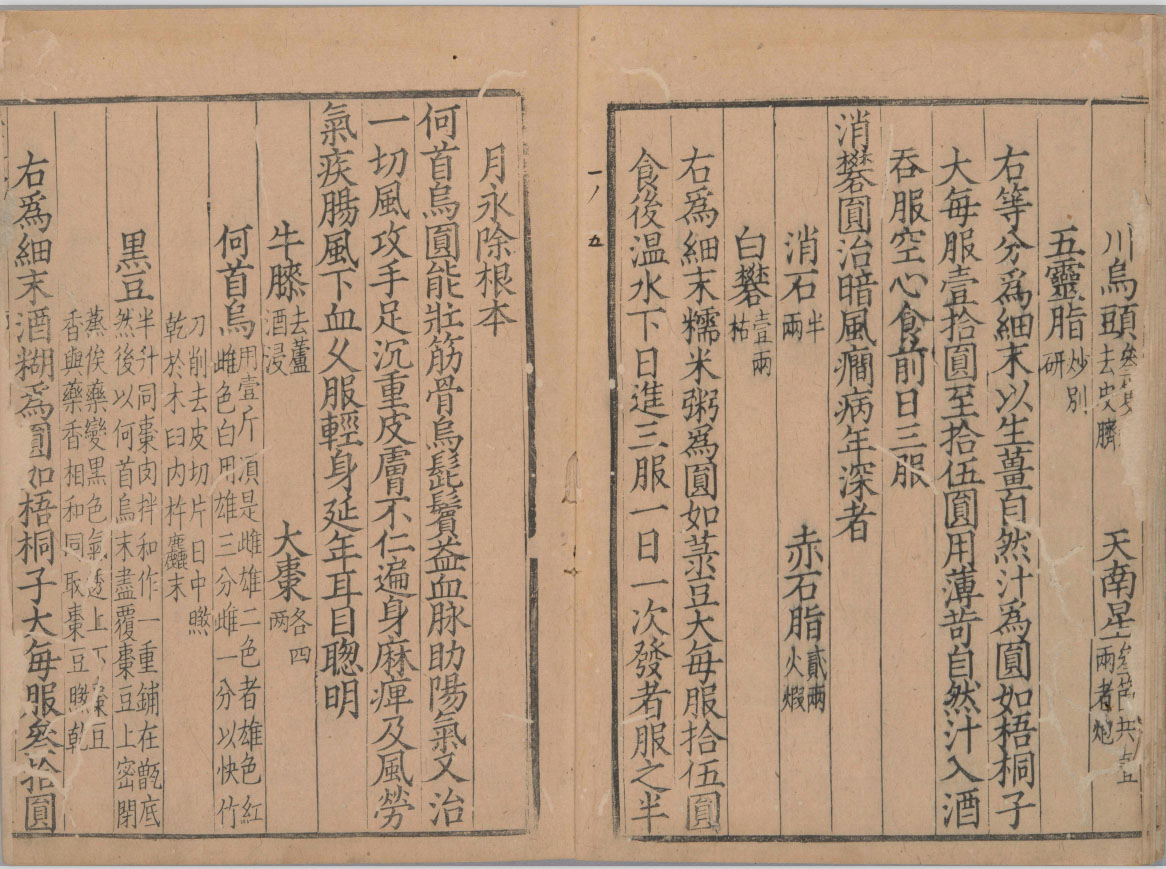 川烏頭去皮臍 天南星兩者炮
五靈脂炒別研
右等分爲細末以生薑自然汁爲圓如梧桐子
大每服壹拾圓至拾伍圓用薄苛自然汁入酒
吞服空心食前日三服
消礬圓治暗風癇病年深者
消石半兩 赤石脂貳兩火煆
白礬壹兩枯
右爲細末糯米粥爲圓如菉豆大每服拾伍圓
食後温水下日進三服一日一次發者服之半
五
月永除根本
何首烏圓能壯筋骨烏髭鬢益血脉助陽氣又治
一切風攻手足沉重皮膚不仁遍身麻痺及風勞
氣疾腸風下血乆服輕身延年耳目聰明
牛膝去蘆酒浸 大棗各四兩
何首烏用壹斤湏是雌雄二色者雄色紅
雌色白用雄三分雌一分以快竹
刀削去皮切片日中㬠
乾於木臼内杵麤末
黑豆半升同棗肉拌和作一重鋪在甑底
然後以何首烏末盡覆棗豆上密閉
蒸候藥變黑色氣透上下棗豆
香與藥香相和同取棗豆㬠乾
右爲細末酒糊爲圓如梧桐子大每服叁拾圓